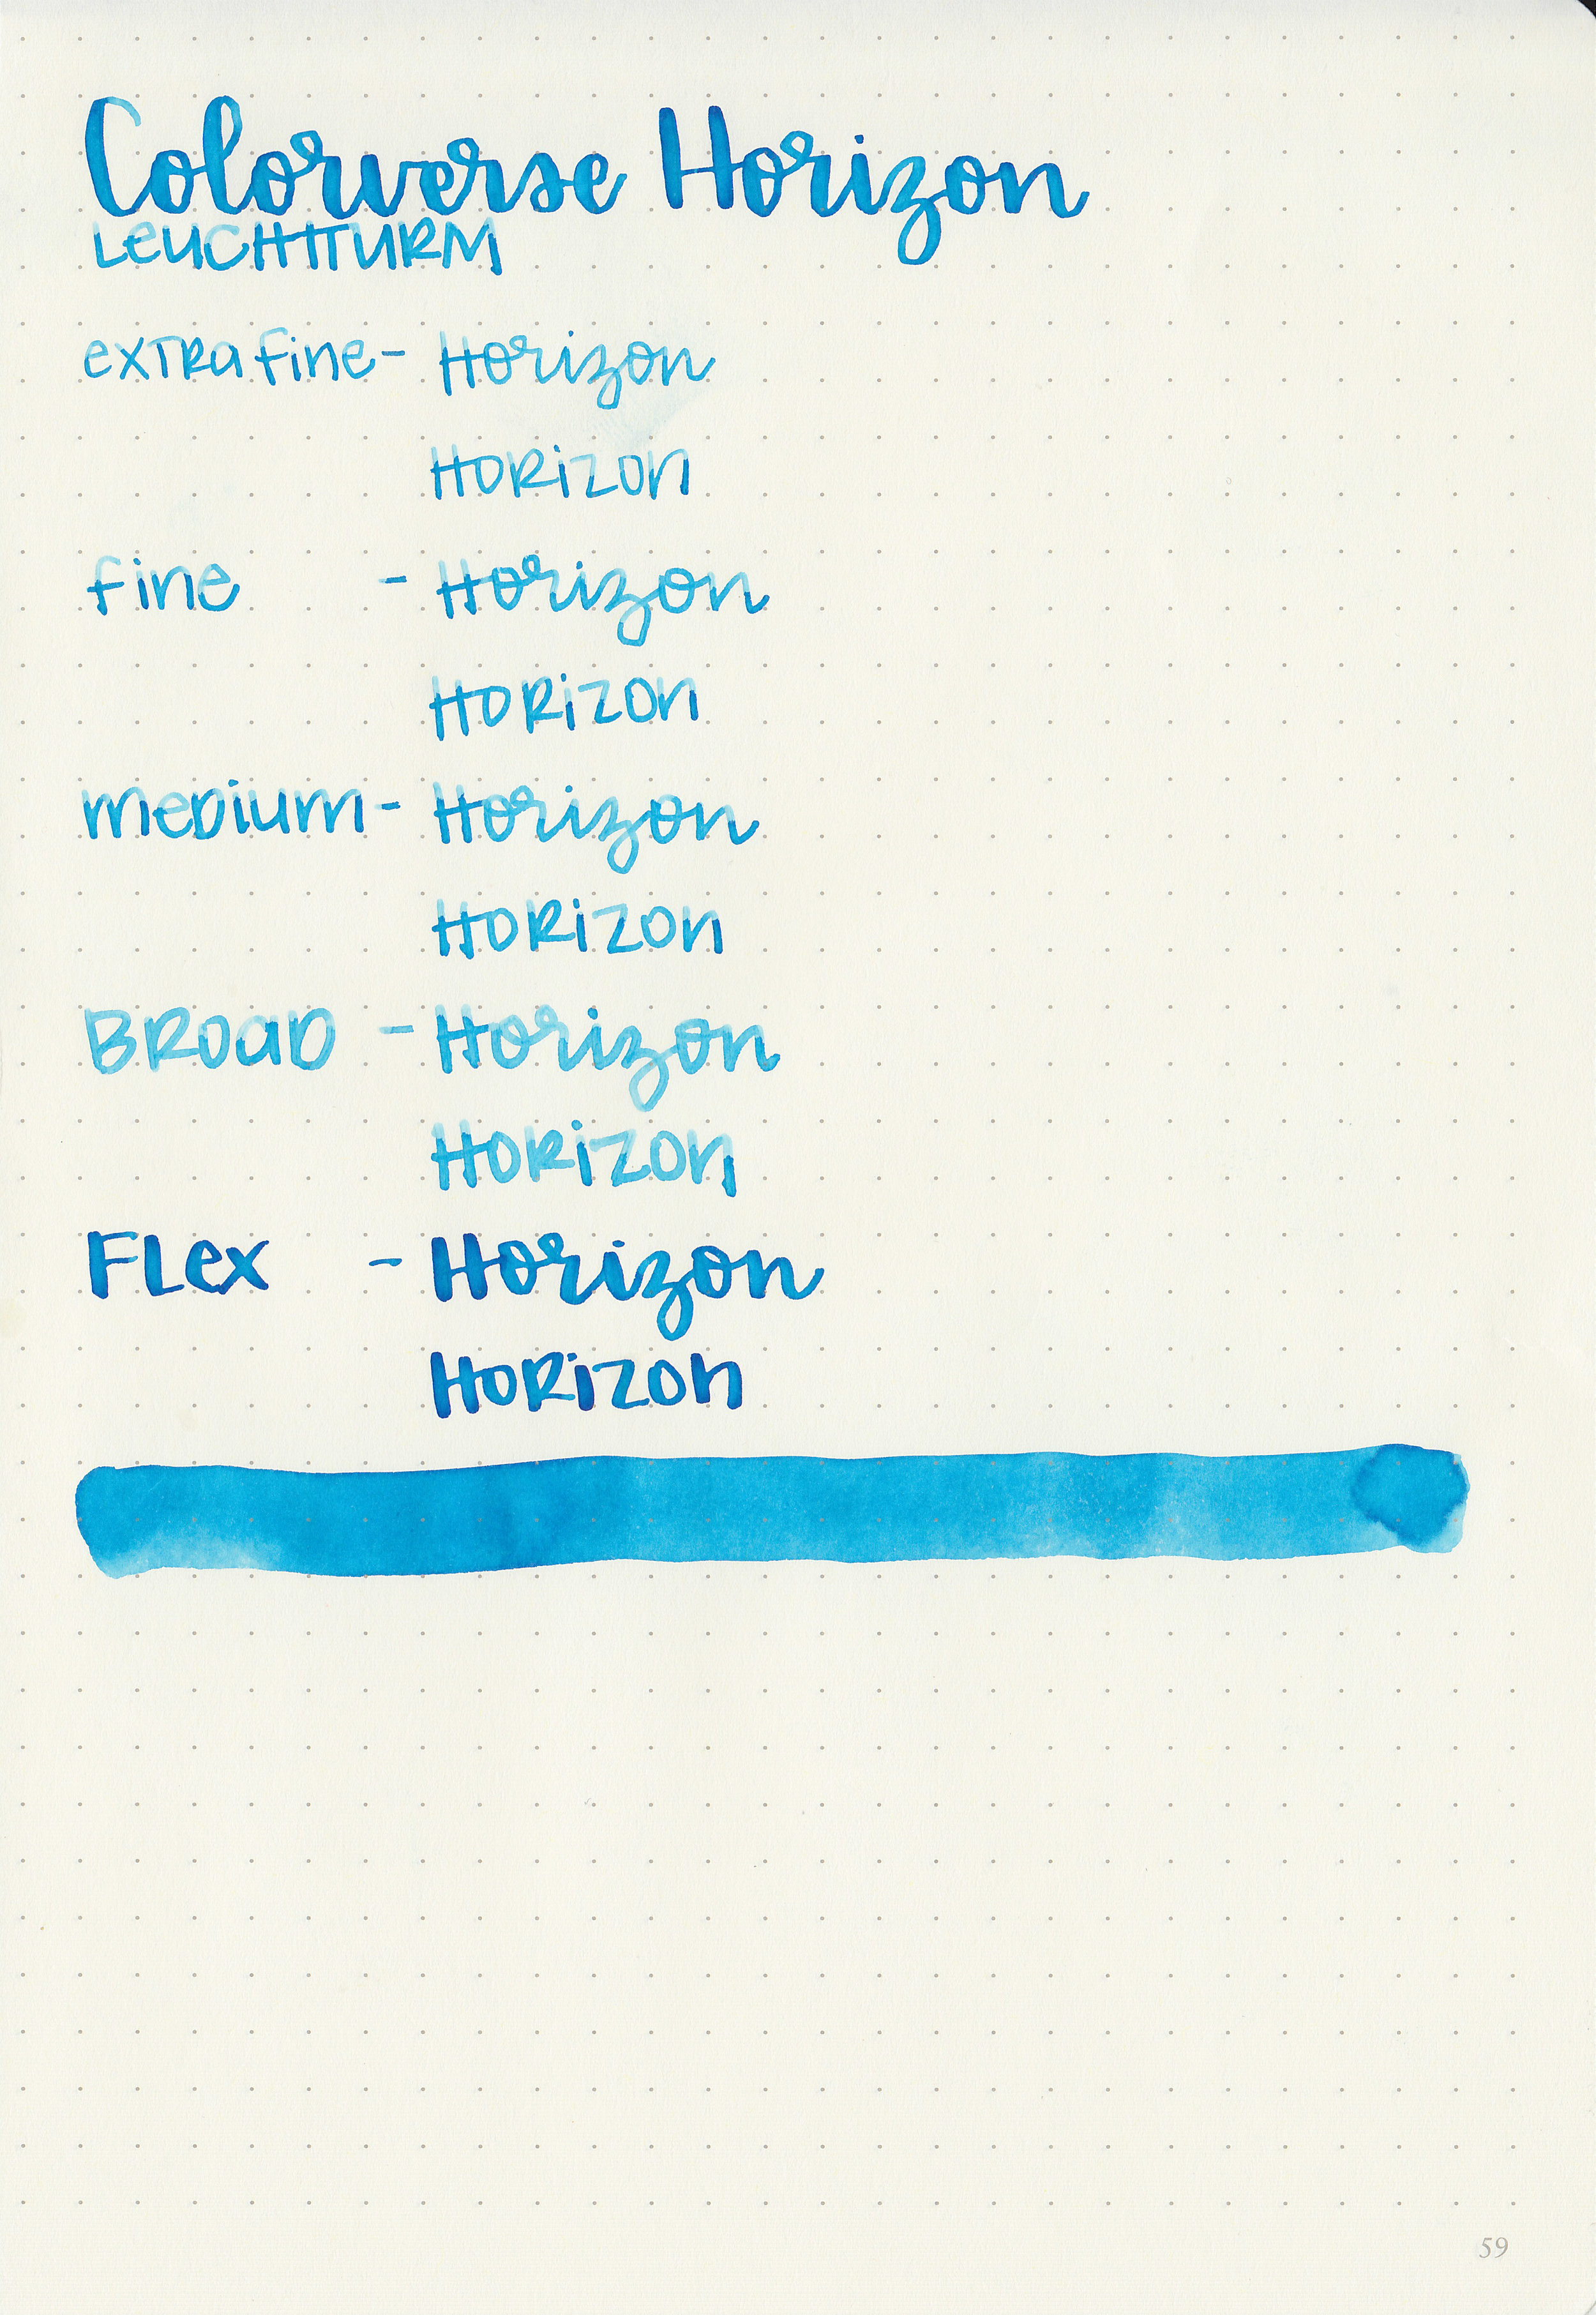 Colorverse Horizon
LEUCHTTURM
extra fine - Horizon
Horizon
fine - Horizon
Horizon
medium - Horizon
Horizon
Broad - Horizon
Horizon
Flex - Horizon
Horizon
59